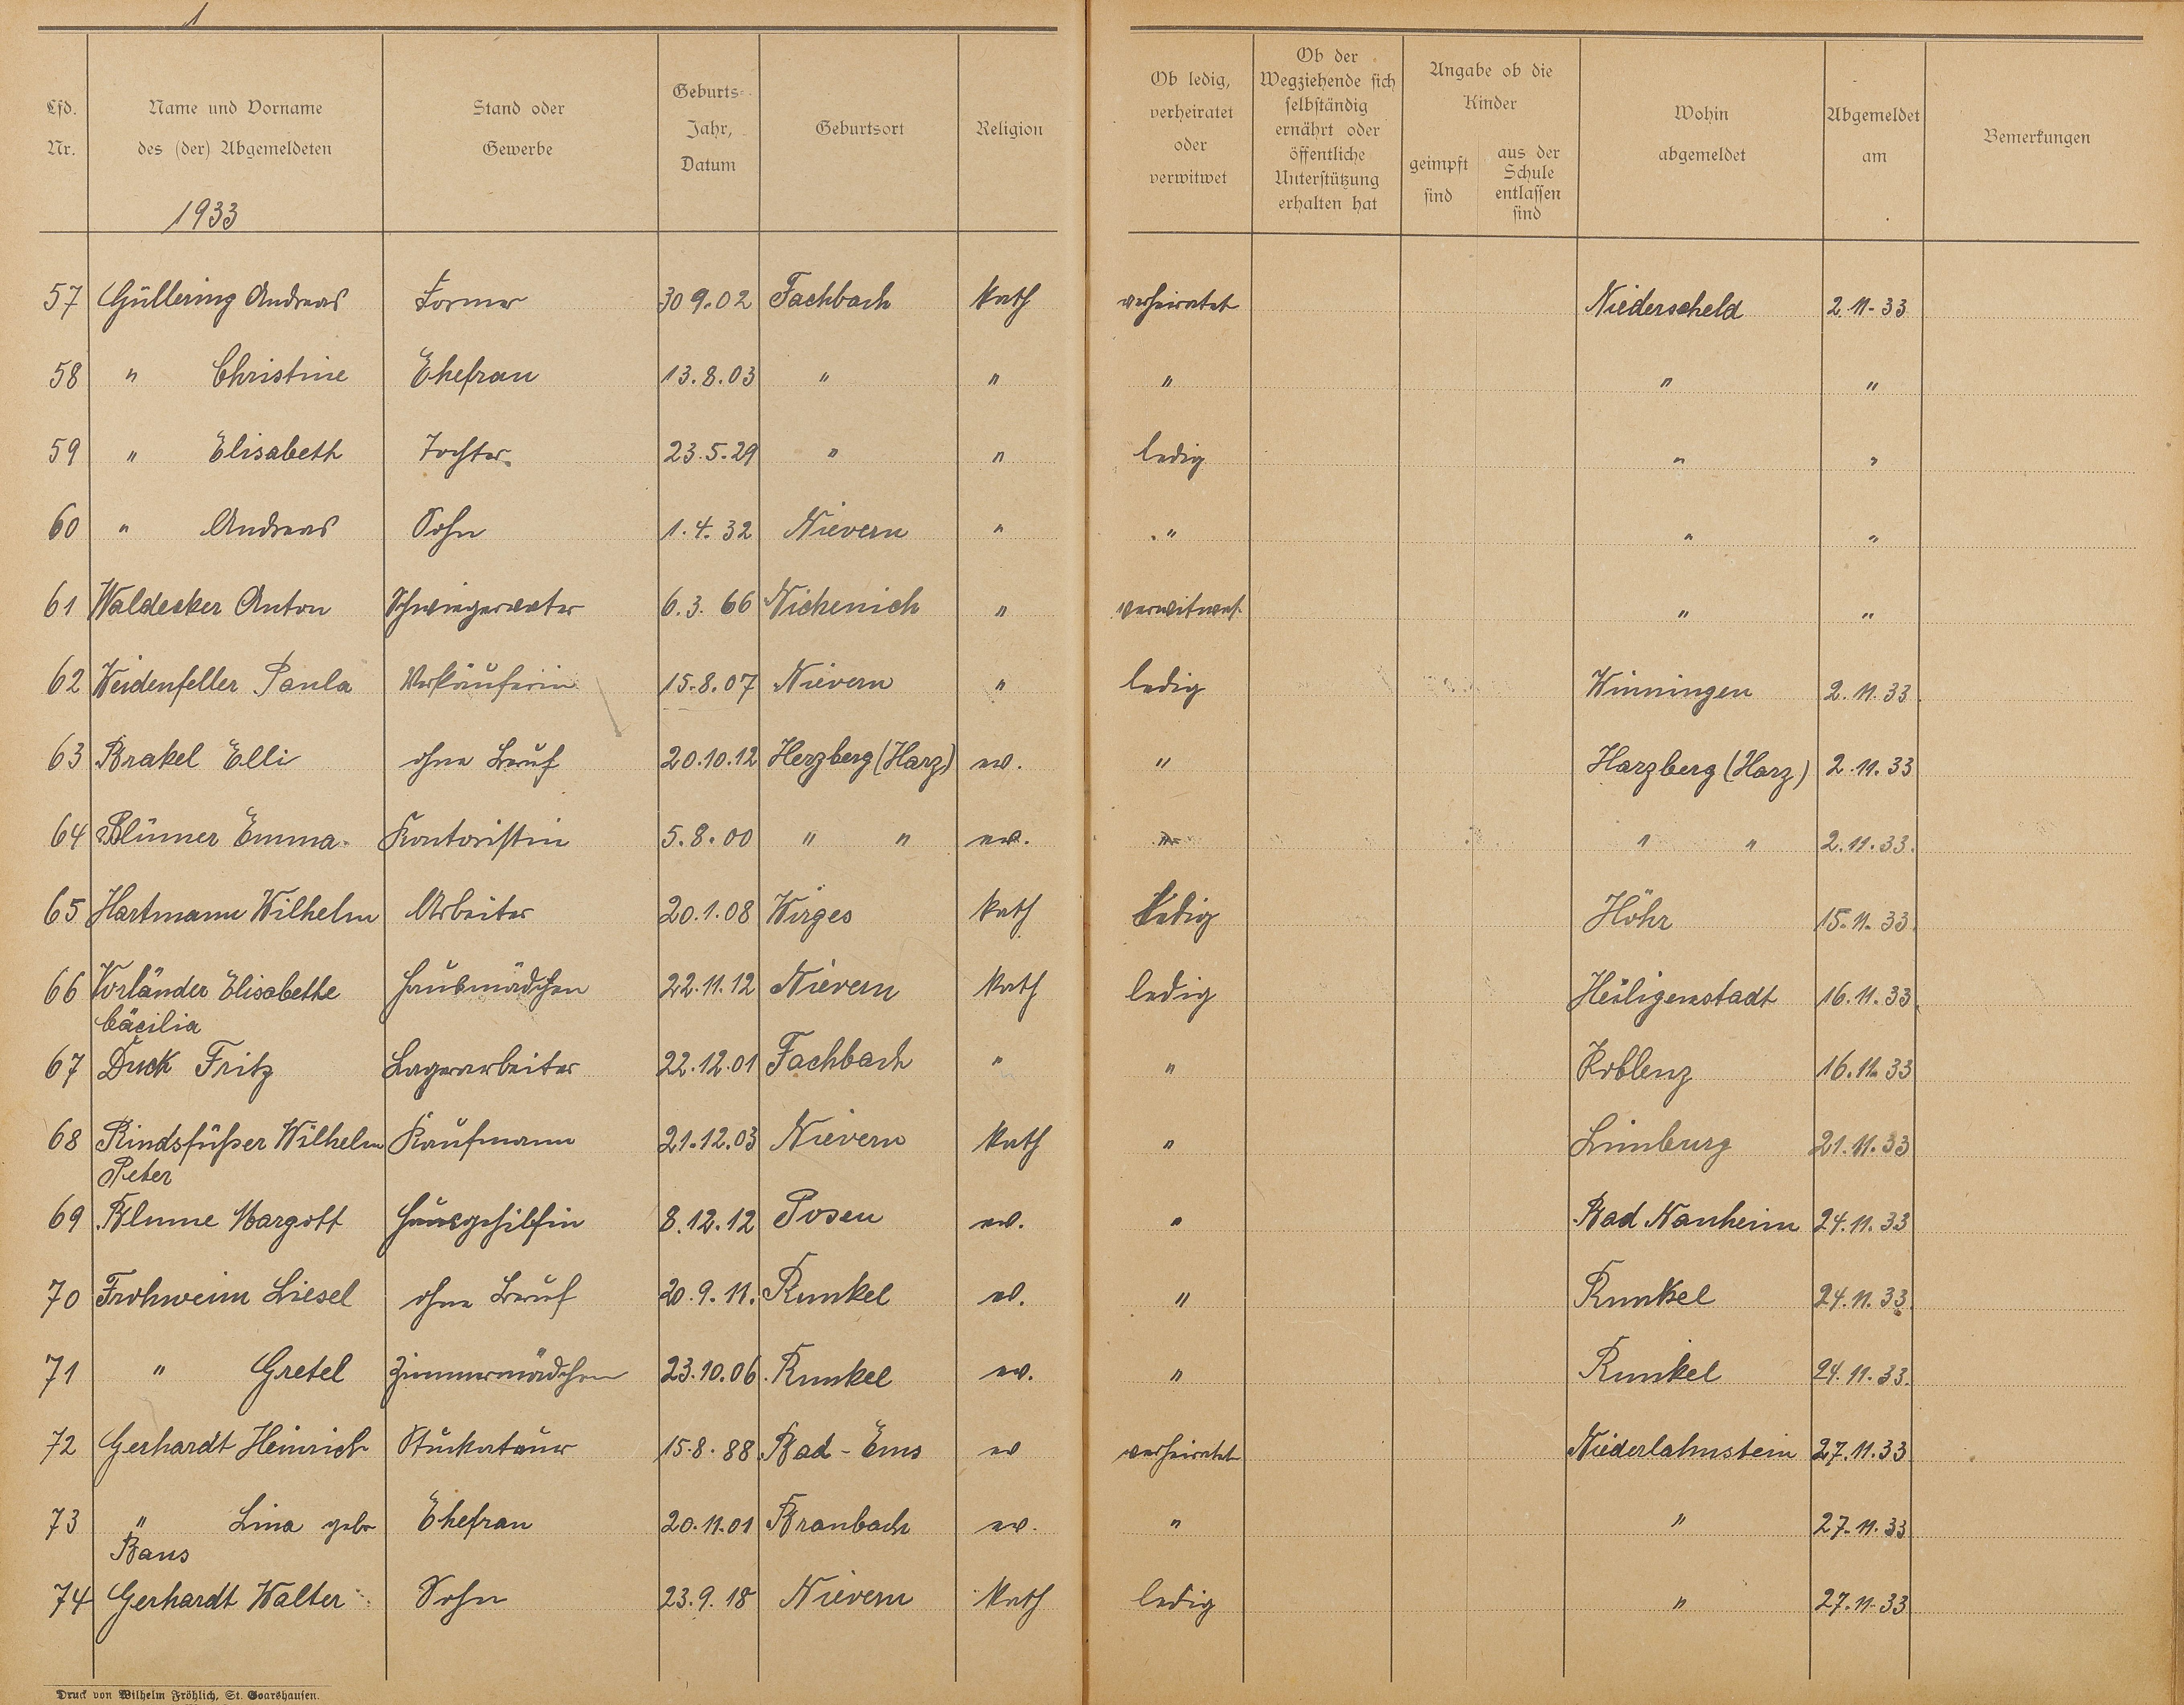 1
Lfd. Nr.
Name und Vorname des (der) Abgemeldeten
Stand oder Gewerbe
Geburts- Jahr, Datum
Geburtsort
Religion
Ob ledig, verheiratet oder verwitwet
Ob der Wegziehende sich selbständig ernährt oder öffentliche Unterstützung erhalten hat
Angabe ob die Kinder
geimpft sind
aus der Schule entlassen sind
Wohin abgemeldet
Abgemeldet am
Bemerkungen
1933
57 Güllering Andreas Former 30 9.02 Fachbach kath verheiratet Niederscheld 2.11.33
58 " Christine Ehefrau 13.8.03 " " " " "
59 " Elisabeth Tochter 23.5.29 " " ledig " "
60 " Andreas Sohn 1.4.32 Nievern " " " "
61 Waldecker Anton Schwiegervater 6.3.66 Nickenich " verwitwet " "
62 Weidenfeller Paula Verkäuferin 15.8.07 Nievern " ledig Winningen 2.11.33
63 Brakel Elli ohne Beruf 20.10.12 Herzberg (Harz) ev. " Harzberg (Harz) 2.11.33
64 Blümer Emma Kontoristin 5.8.00 " " ev. " " " 2.11.33.
65 Hartmann Wilhelm Arbeiter 20.1.08 Wirges kath ledig Höhr 15.11.33
66 Vorländer Elisabethe Hausmädchen 22.11.12 Nievern kath ledig Heiligenstadt 16.11.33
Cäcilia
67 Duck Fritz Lagerarbeiter 22.12.01 Fachbach " " Koblenz 16.11.33
68 Rindsfüßer Wilhelm Kaufmann 21.12.03 Nievern kath " Limburg 21.11.33
Peter
69 Blume Margott Hausgehilfin 8.12.12 Posen ev. " Bad Nauheim 24.11.33
70 Frohwein Liesel ohne Beruf 20.9.11. Runkel ev. " Runkel 24.11.33
71 " Gretel Zimmermädchen 23.10.06 Runkel ev. " Runkel 24.11.33.
72 Gerhardt Heinrich Stuckateur 15.8.88 Bad-Ems ev verheiratet Niederlahnstein 27.11.33
73 " Lina geb. Ehefrau 20.11.01 Braubach ev. " " 27.11.33
Baus
74 Gerhardt Walter Sohn 23.9.18 Nievern kath ledig " 27.11.33
Druck von Wilhelm Fröhlich, St. Goarshausen.